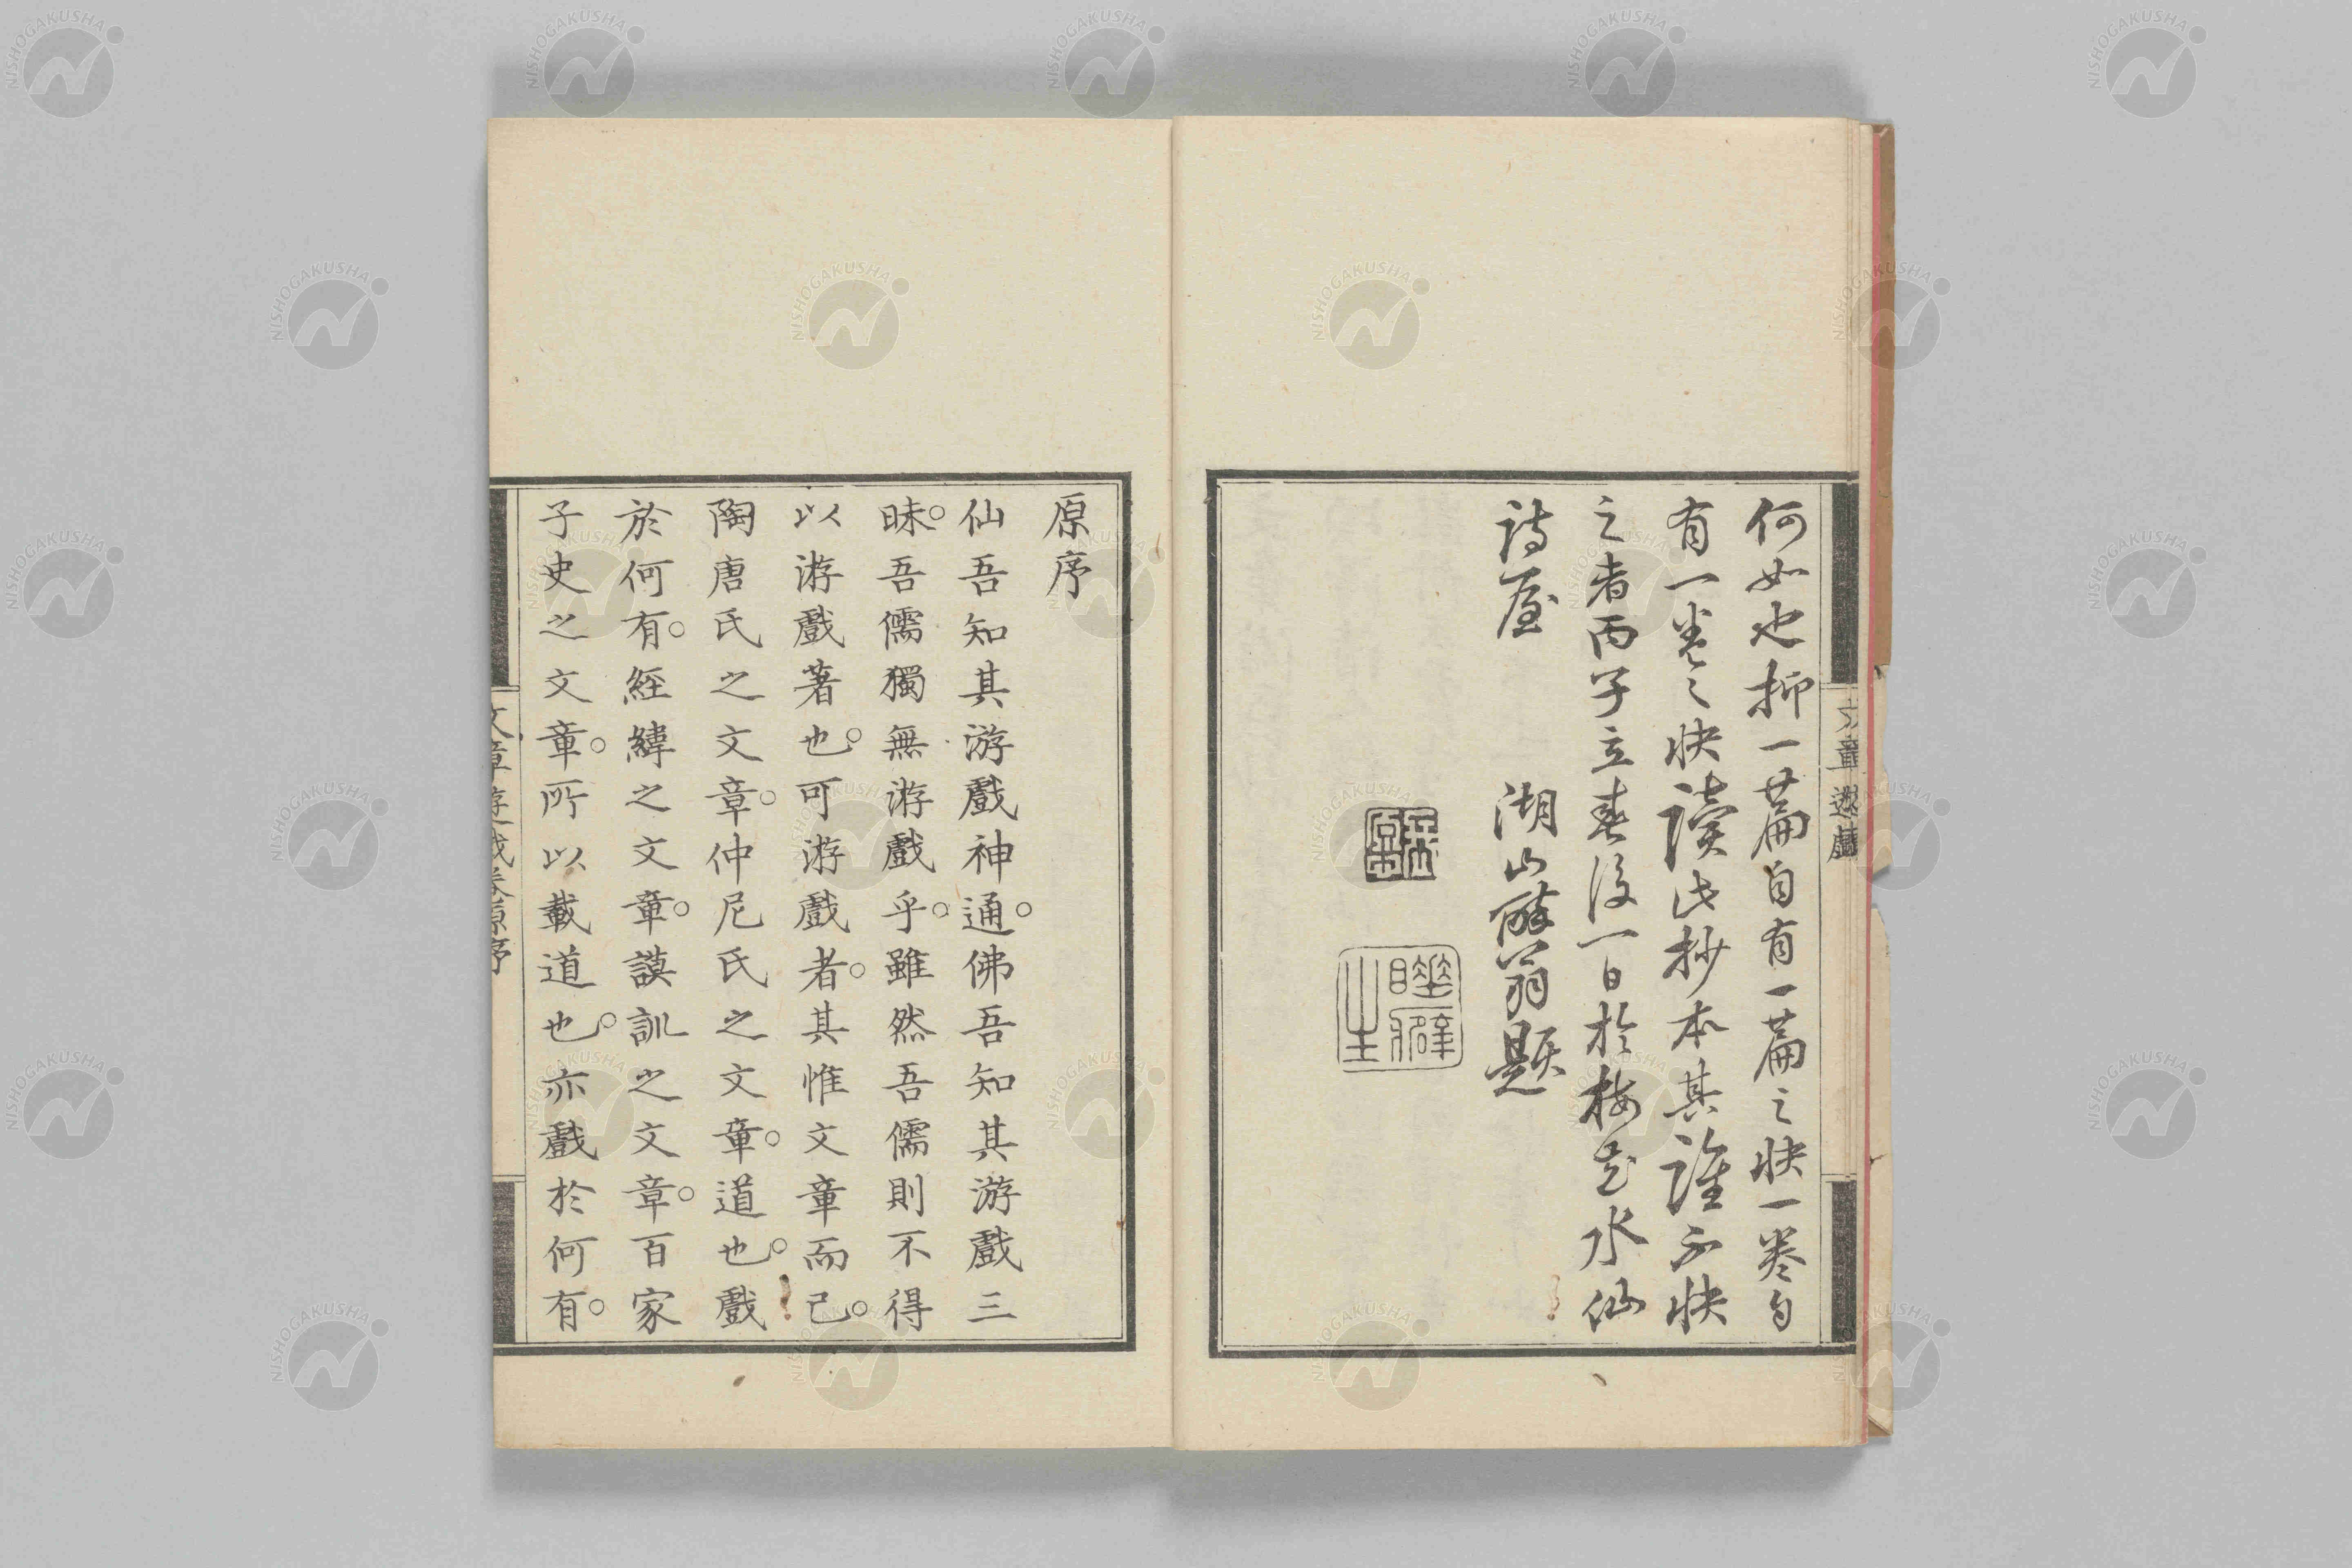 何如也抑一篇自有一篇之快一卷自
有一卷之快讀此抄本其誰不快
之者丙子立春後一日於梅花水仙
詩屋　湖山醉翁題
原序
仙吾知其游戲神通。佛吾知其游戲三
昧。吾儒獨無游戲乎。雖然吾儒則不得
以游戲著也。可游戲者。其惟文章而已。
陶唐氏之文章。仲尼氏之文章。道也。戲
於何有。經緯之文章。謨訓之文章。百家
子史之文章。所以載道也。亦戲於何有。
文章遊戲卷原序
文章遊戲
NISHOGAKUSHA